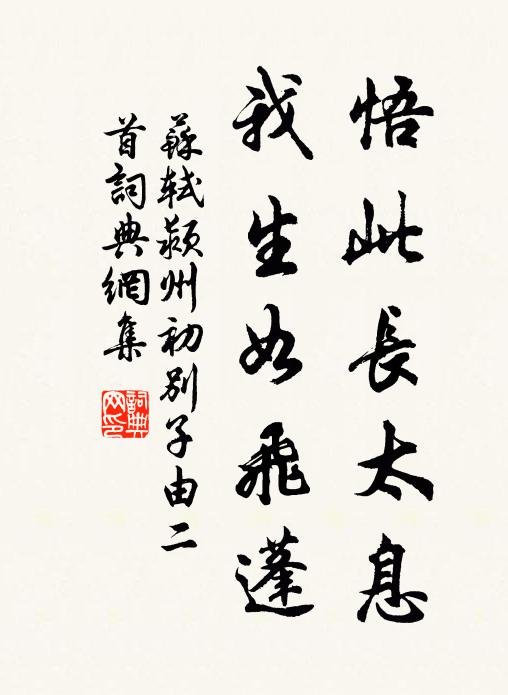 悟此長太息
我生如飛蓬
蘇軾潁州初別子由二
首詞典網集
詞典
网印